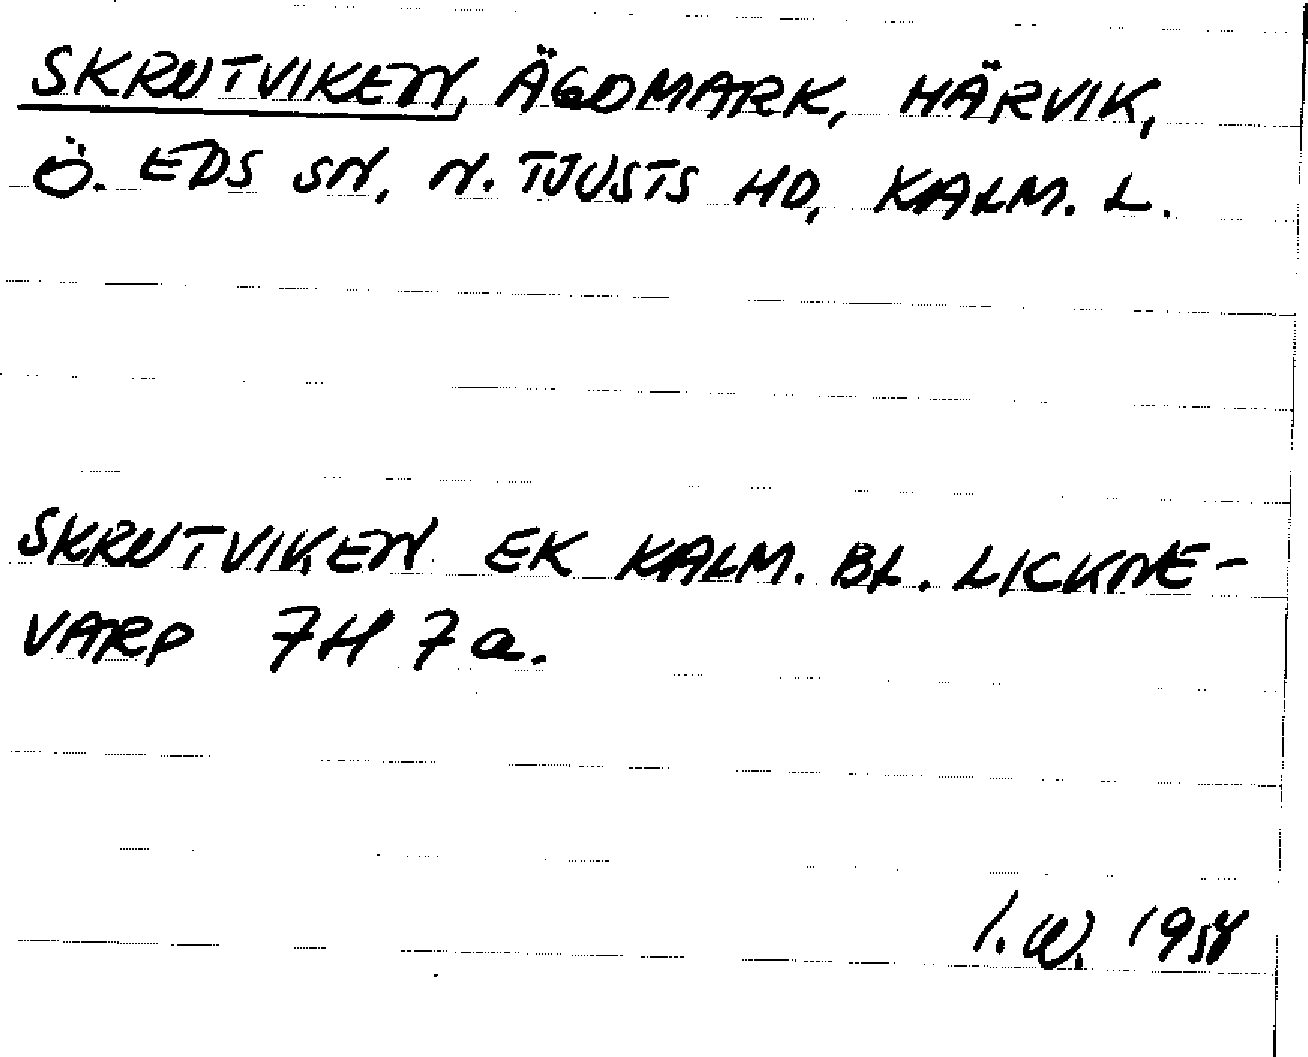 SKRUTVIKEN, ÄGOMARK, HÄRVIK,
Ö. EDS SN, N. TJUSTS HD, KALM. L.
SKRUTVIKEN EK KALM. BL. LICKNE-
VARP 7H 7a.
I.W. 1958